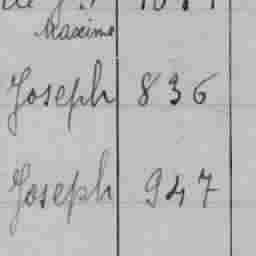 Maxime
Joseph 836
Joseph 947